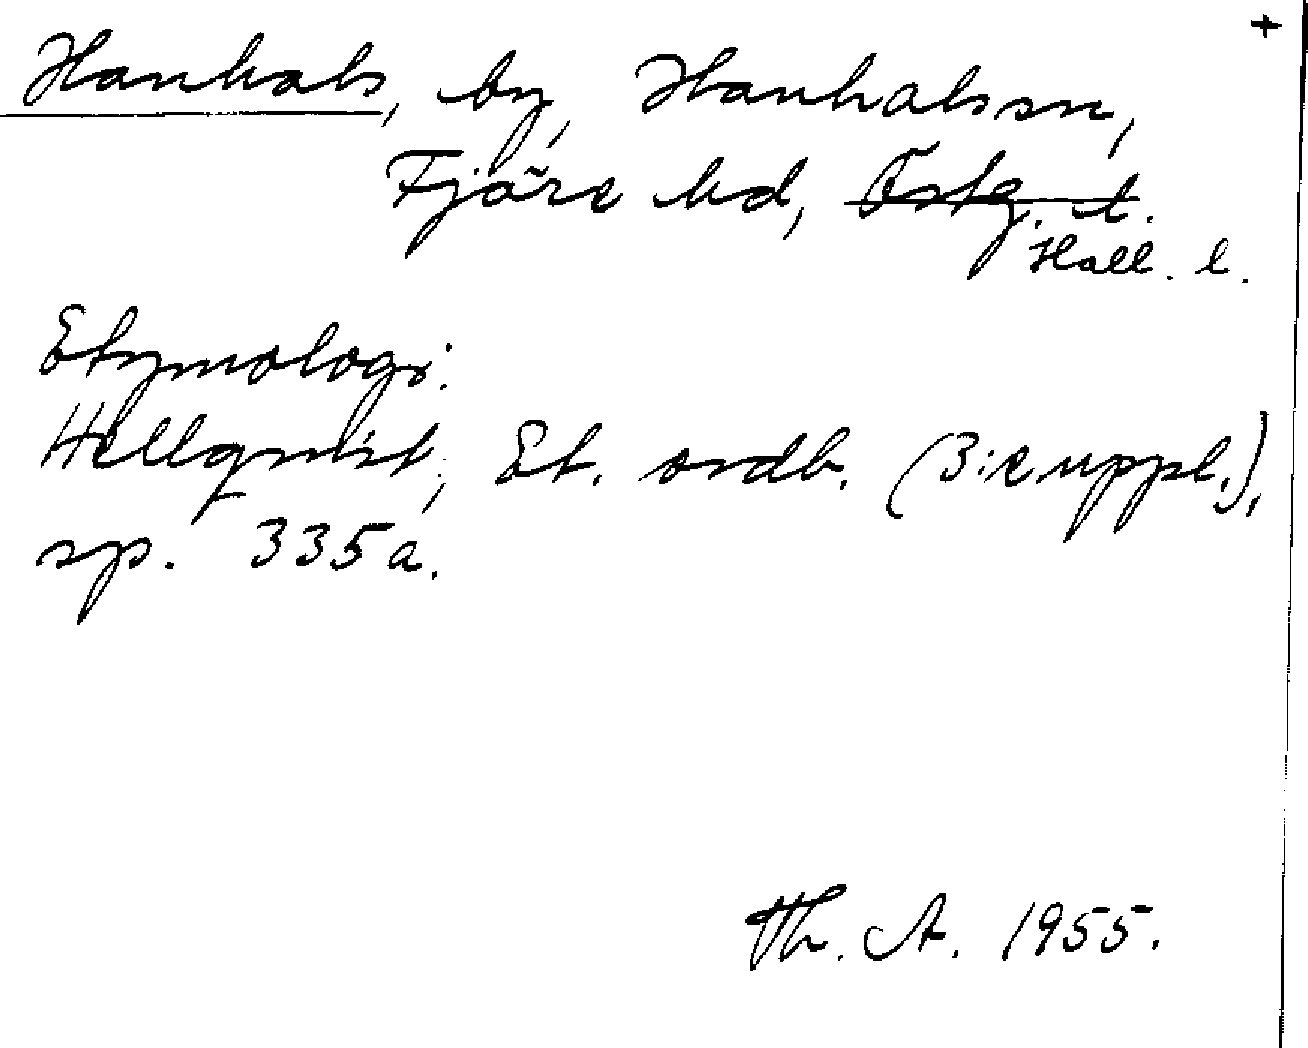 +
Hanhals, by, Hanhals sn,
Fjäre hd, Östg. l.
Hall. l.
Etymologi:
Hellquist, Et. ordb. (3:e uppl.),
sp. 335 a.
Th. A. 1955.